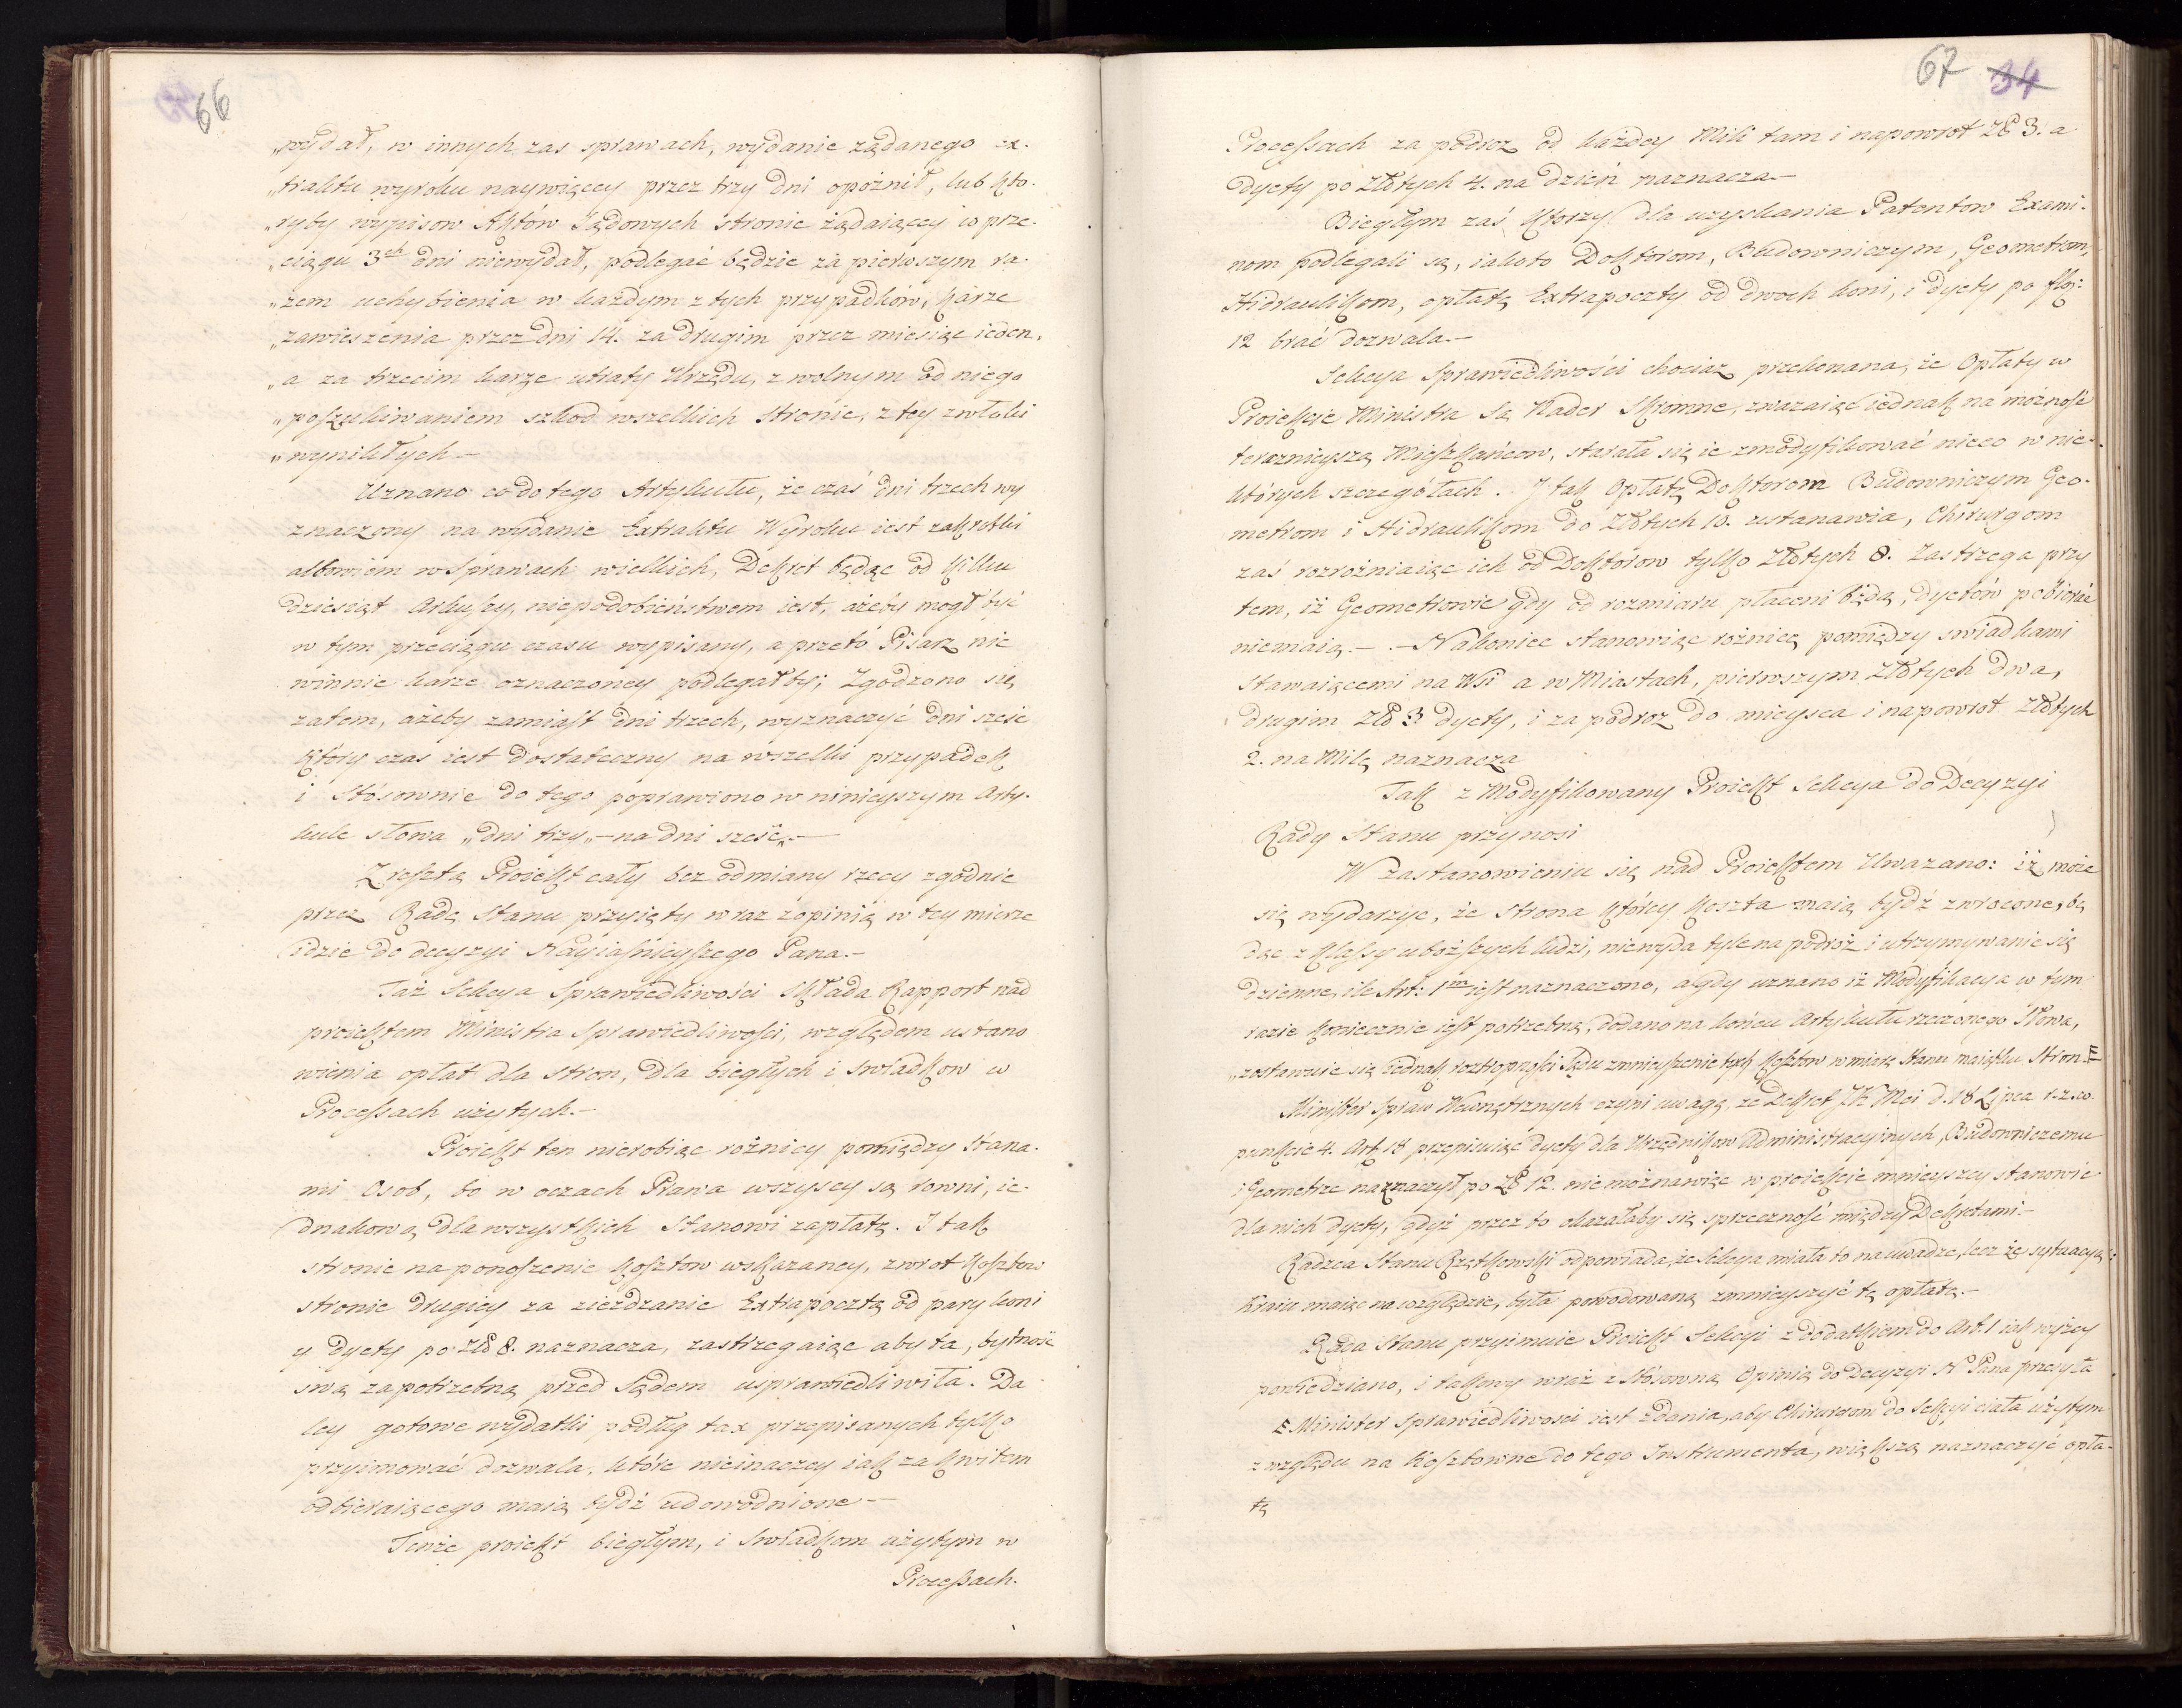 66
„wydał, w innych zas sprawach, wydanie żądanego ex-
„traktu wyroku naywięcey przez trzy dni opóźnił, lub któ-
„ryby wypisow Aktów Sądowych stronie żądaiącey w prze-
„ciągu 3ch dni niewydał, podlegać będzie za pierwszym ra-
„zem uchybienia w każdym z tych przypadków, karze
„zawieszenia przez dni 14. za drugim przez miesiąc ieden,
„a za trzecim karze utraty Urzędu, z wolnym od niego
„poszukiwaniem szkod wszelkich stronie, z tey zwłoki
„wynikłych —
Uznano co do tego Artykułu, że czas dni trzech wy
znaczony na wydanie Extraktu Wyroku iest zakrotki
albowiem w Sprawach wielkich, Dekret będąc od kilku
dziesiąt Arkuszy, niepodobieństwem iest, ażeby mogł być
w tym przeciągu czasu wypisany, a przeto Pisarz nie
winnie karze oznaczoney podlegałby; Zgodzono się
zatem, ażeby zamiast dni trzech, wyznaczyć dni sześć
który czas iest dostateczny na wszelki przypadek
i stósownie do tego poprawiono w ninieyszym Arty-
kule słowa „dni trzy„ — na dni sześć„ —
Zresztą Proiekt cały bez odmiany rzeczy zgodnie
przez Radę Stanu przyięty wraz z opinią w tey mierze
idzie do decyzyi Nayiaśnieyszego Pana. —
Taż Sekcya Sprawiedliwości składa Rapport nad
proiektem Ministra Sprawiedliwości, względem ustano
wienia opłat dla stron, dla biegłych i Swiadkow w
Processach użytych. —
Proiekt ten nierobiąc rożnicy pomiędzy Stana-
mi Osob, bo w oczach Prawa wszyscy są rowni, ie-
dnakową dla wszystkich Stanowi zapłatę. I tak
stronie na ponoszenie kosztow wskazaney, zwrot kosztow
stronie drugiey za zieżdzanie Extrapocztą od pary koni
y dyety po złł 8. naznacza, zastrzegaiąc aby ta, bytność
swą za potrzebną przed Sądem usprawiedliwiła. Da
ley gotowe wydatki podług tax przepisanych tylko
przyimować dozwala, które nieinaczey iak za kwitem
odbieraiącego maią bydź udowodnione —
Tenże proiekt biegłym, i Swiadkom użytym w
Processach.
67 34
Processach za podroż od każdey Mili tam i napowrot złł 3. a
dyety po Złłotych 4. na dzień naznacza. —
Biegłym zaś którzy dla uzyskania Patentow Exami-
nom podlegali są, iako to Doktorom, Budowniczym, Geometrom,
Hidraulikom, opłatę Extrapoczty od dwoch koni, i dyety po fl:
12 brać dozwala. —
Sekcya Sprawiedliwości chociaż przekonana, że Opłaty w
Proiekcie Ministra Są Nader Skromne, zważaiąc iednak na możność
teraznieyszą Mieszkańcow, starała się ie zmodyfikować nieco w nie-
których szczegółach. I tak Opłatę Doktorom Budowniczym Geo-
metrom i Hidraulikom do Złłotych 10. ustanawia, Chirurgom
zaś rozrożniaiąc ich od Doktorow tylko Złłotych 8. Zastrzega przy
tem, iż Geometrowie gdy od rozmiaru płaceni będą, dyetów pobierać
niemaią. — — Nakoniec stanowiąc rożnicę pomiędzy swiadkami
stawaiącemi na Wsi a w Miastach, pierwszym Złłotych dwa,
drugim złł 3 dyety, i za podroż do mieysca i napowrot złłotych
2. na Milę naznacza
Tak z Modyfikowany Proiekt Sekcya do Decyzyi
Rady Stanu przynosi
W Zastanowieniu się nad Proiektem Uwazano: iż może
się wydarzyć, że strona którey koszta maią bydź zwrocone, bę
dąc z klassy uboższych ludzi, niewyda tyle na podroż i utrzymywanie się
dzienne, ile Art: 1m iest naznaczono, a gdy uznano iż Modyfikacya w tym
razie koniecznie iest potrzebną, dodano na końcu Artykułu rzeczonego Słowa,
„zostawuie się iednak roztropności Sądu zmnieyszenie tych kosztow w miarę stanu maiątku Stron E
Minister Spraw Wewnętrznych czyni uwagę, że Dekret JK Mci d. 18 Lipca r. z. w
punkcie 4. Art. 18 przepisuiąc dyety dla Urzędnikow Administracyjnych, Budowniczemu
i Geometrze naznaczył po złł 12. nie można więc w proiekcie mnieyszey stanowić
dla nich dyety, gdyż przez to okazałaby się sprzeczność między Dekretami. —
Radzca Stanu Rzętkowski odpowiada, że Sekcya miała to na uwadze, lecz że sytuacyą
Kraiu maiąc na względzie, była powodowaną zmnieyszyć tę opłatę. —
Rada Stanu przyimuie Proiekt Sekcyi z dodatkiem do Art. 1 iak wyżey
powiedziano, i takowy wraz z Stósowną Opinią do Decyzyi N Pana przesyła
E Minister Sprawiedliwości iest zdania, aby Chirurgom do Sekcyi ciała użytym
z względu na kosztowne do tego Instrumenta, większą naznaczyć opła-
tę